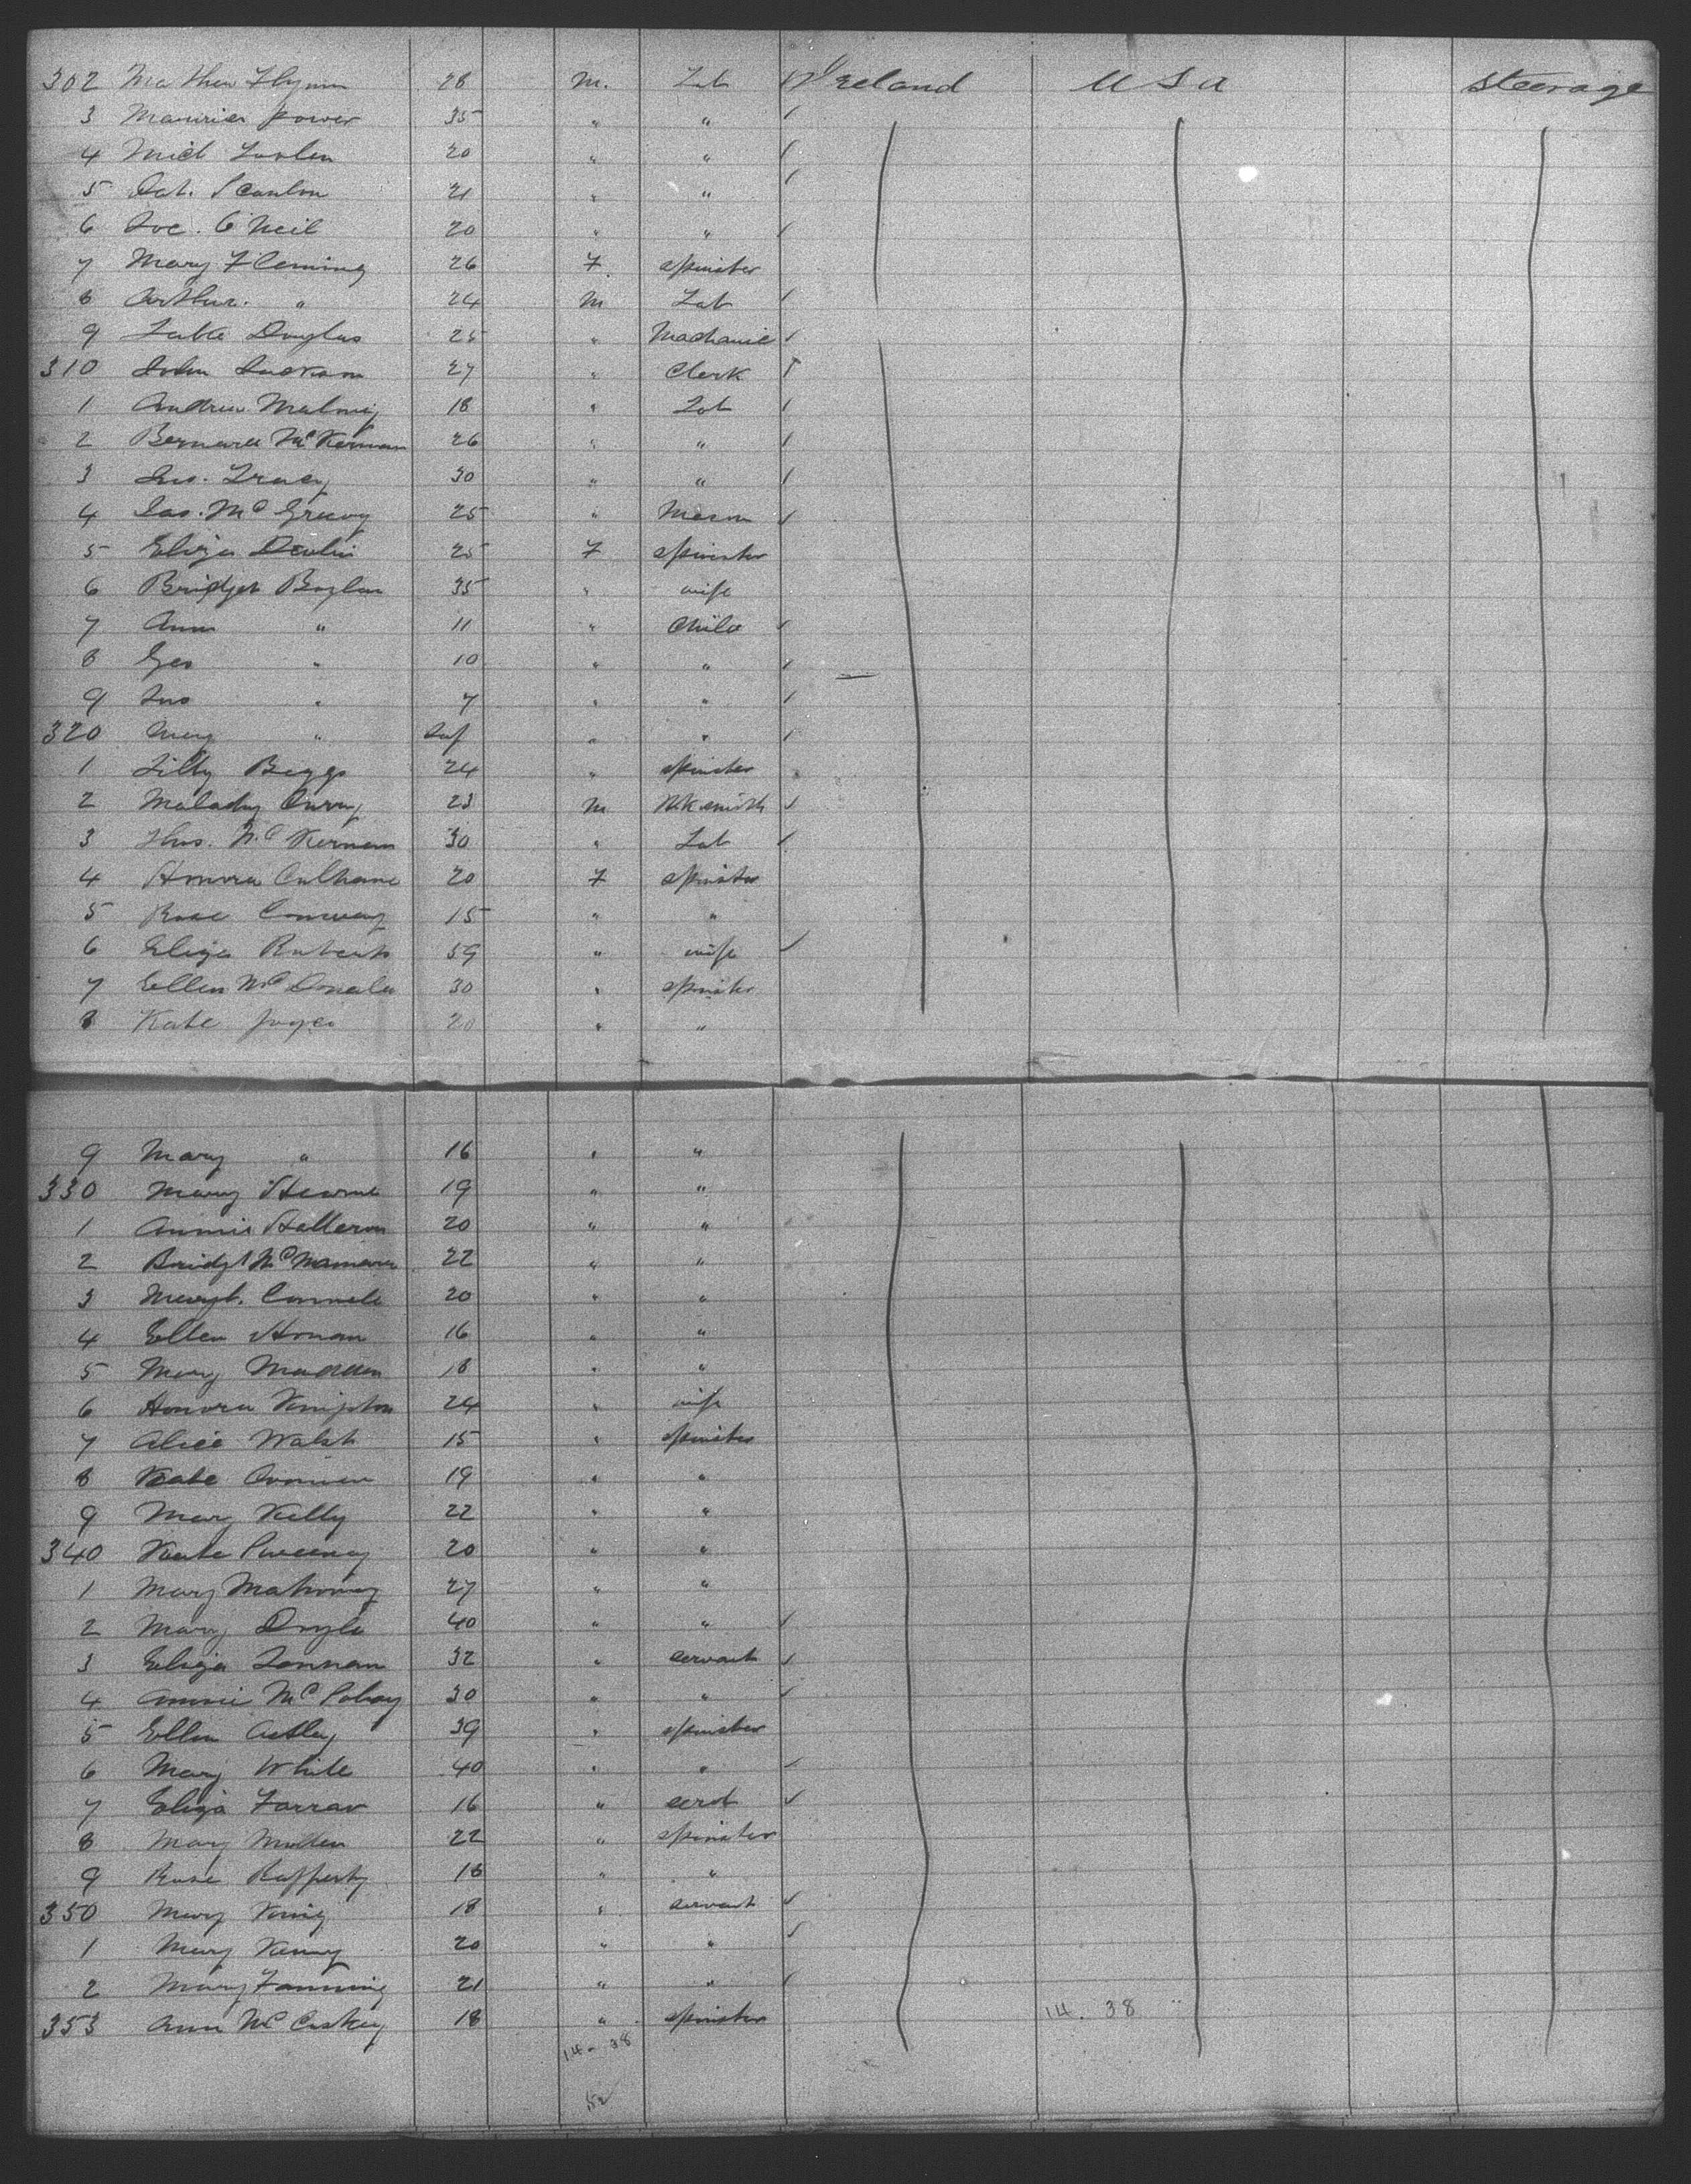 302 Mathew Flynn 28 M. Lab Ireland USA Steerage
3 Maurice Power 35 " "
4 Mich 20 " "
5 Pat. Scanlon 21 " "
6 O'Neil 20 " "
7 Mary Fleming 26 F. spinster
8 Arthur. " 24 M Lab
9 Luke Douglas 25 " Machanic
310 John Jackson 27 " Clerk
1 Andrew Maloney 18 " Lab
2 Bernard McKernan 26 " "
3 Jno. Tracy 30 " "
4 Jas. McGreevy 25 " Mason
5 Eliza Devlin 25 F spinster
6 Bridget Boylan 35 " wife
7 Ann " 11 " Child
8 Geo " 10 " "
9 Jno " 7 " "
320 Mary " Inf " "
1 Lilly Beggs 24 " spinster
2 Malachy Curry 23 M Blksmith
3 Thos. McKernan 30 " Lab
4 Honora Culhane 20 F spinster
5 Rose Conway 15 " "
6 Eliza Roberts 59 " wife
7 Ellen McDonald 30 " spinster
8 Kate Joyce 20 " "
9 Mary " 16 " "
330 Mary Hearne 19 " "
1 Annie Halleron 20 " "
2 Bridgt McNamara 22 " "
3 Margt. Connell 20 " "
4 Ellen Honan 16 " "
5 Mary Madden 18 " "
6 Honora Kingston 24 " wife
7 Alice Walsh 15 " spinster
8 Kate 19 " "
9 Mary Kelly 22 " "
340 Kate Sweeney 20 " "
1 Mary Mahoney 27 " "
2 Mary Doyle 40 " "
3 Eliza Lennan 32 " servant
4 Annie Mc 30 " "
5 Ellen 39 " spinster
6 Mary White 40 " "
7 Eliza Farrar 16 " servt
8 Mary Mullen 22 " spinster
9 Rose Rafferty 18 " "
350 Mary King 18 " servant
1 Mary Kenny 20 " "
2 Mary Fanning 21 " "
353 Ann McCaskey 18 " spinster 14. 38
14 - 38
52